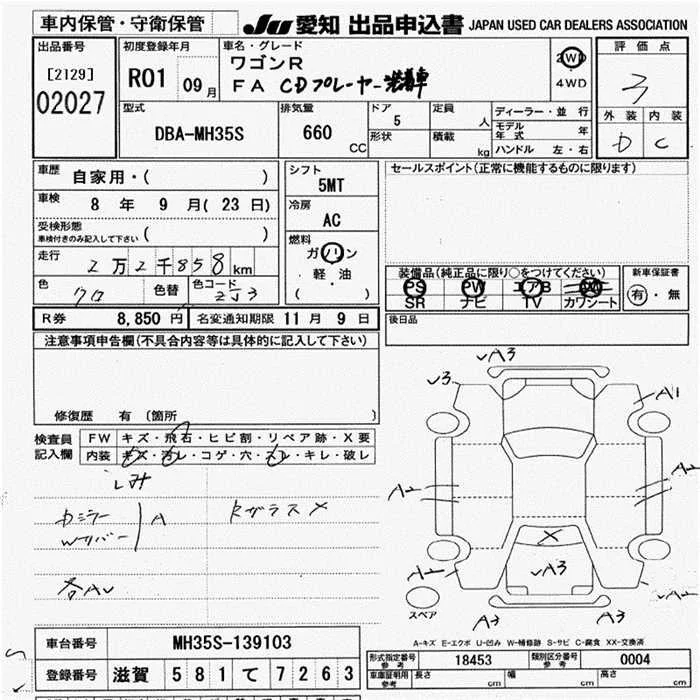 車内保管・守衛保管
JU 愛知 出品申込書 JAPAN USED CAR DEALERS ASSOCIATION
出品番号
[2129]
02027
初度登録年月
R01 09月
車名・グレード
ワゴンR
FA CDプレーヤー
2WD
4WD
評価点
3
外装 内装
D C
型式
DBA-MH35S
排気量
660 CC
ドア
5
形状
定員 人
積載 kg
ディーラー・並 行
モデル年式 年
ハンドル 左・右
車歴
自家用・( )
車検
8 年 9 月( 23 日)
受検形態
車検付きのみ記入して下さい ( )
走行
2万2千858km
色
クロ
色替
色コード
ZJ3
シフト
5MT
冷房
AC
燃料
ガソリン
軽・油
( )
セールスポイント(正常に機能するものに限ります)
装備品(純正品に限り○をつけてください)
PS PW エアB
SR ナビ TV カワシート
新車保証書
有・無
R券 8,850 円 名変通知期限 11 月 9 日
後日品
注意事項申告欄(不具合内容等は具体的に記入して下さい)
修復歴 有 (箇所 )
検査員記入欄
FW キズ・飛石・ヒビ割・リペア跡・X要
内装 キズ・汚レ・コゲ・穴・スレ・キレ・破レ
シミ
カミラー
Wリバー
A
RガラスX
各AU
√A3
√3
A1
A2
A2
X
√A3
A2
√A2
A3
A3
スペア
A-キズ E-エクボ U-凹み W-補修跡 S-サビ C-腐食 XX-交換済
車台番号 MH35S-139103
登録番号 滋賀 581て7263
形式指定番号 参考 18453
類別区分番号 参考 0004
車庫証明用 参考 長さ cm 幅 cm 高さ cm